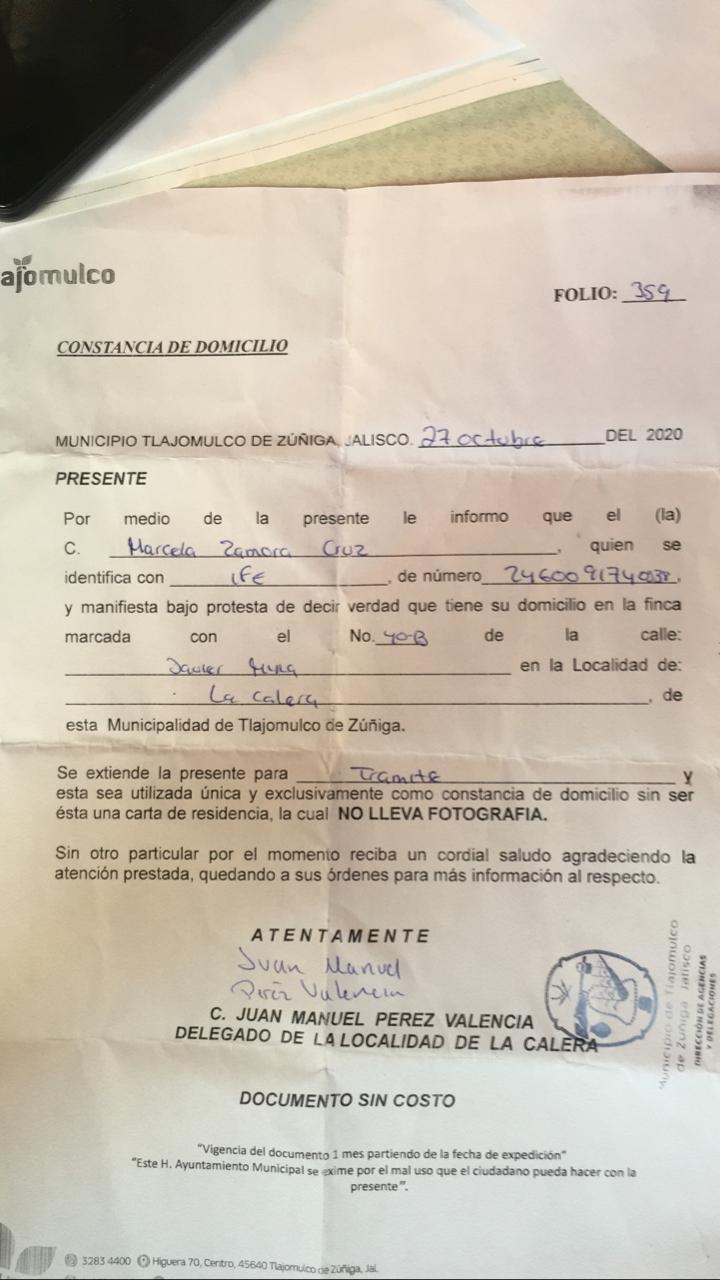 ajomulco
FOLIO: 359
CONSTANCIA DE DOMICILIO
MUNICIPIO TLAJOMULCO DE ZÚÑIGA, JALISCO. 27 octubre DEL 2020
PRESENTE
Por medio de la presente le informo que el (la)
C. Marcela Zamora Cruz, quien se
identifica con IFE, de número
y manifiesta bajo protesta de decir verdad que tiene su domicilio en la finca
marcada con el No. 40-B de la calle:
Javier en la Localidad de:
La Calera, de
esta Municipalidad de Tlajomulco de Zúñiga.
Se extiende la presente para Tramite y
esta sea utilizada única y exclusivamente como constancia de domicilio sin ser
ésta una carta de residencia, la cual NO LLEVA FOTOGRAFIA.
Sin otro particular por el momento reciba un cordial saludo agradeciendo la
atención prestada, quedando a sus órdenes para más información al respecto.
ATENTAMENTE
Juan Manuel
Perez Valencia
C. JUAN MANUEL PEREZ VALENCIA
DELEGADO DE LA LOCALIDAD DE LA CALERA
Municipio de Tlajomulco
de Zúñiga Jalisco
DIRECCIÓN DE AGENCIAS
Y DELEGACIONES
DOCUMENTO SIN COSTO
"Vigencia del documento 1 mes partiendo de la fecha de expedición"
"Este H. Ayuntamiento Municipal se exime por el mal uso que el ciudadano pueda hacer con la
presente".
3283 4400 Higuera 70, Centro, 45640 Tlajomulco de Zúñiga, Jal.